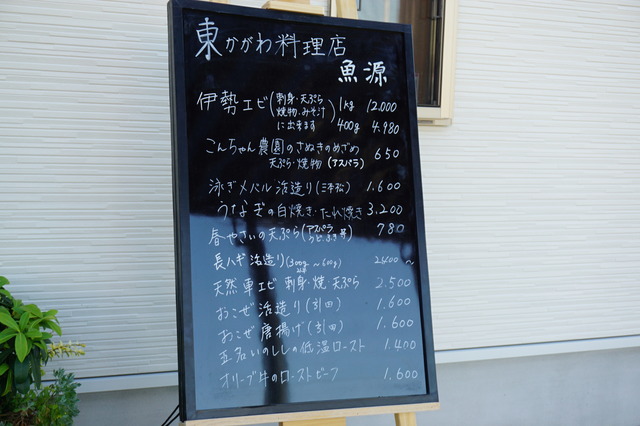 東かがわ料理店
魚源
伊勢エビ(刺身・天ぷら 焼物・みそ汁 に出来ます) 1kg 12.000
400g 4.980
こんちゃん農園のさぬきのめざめ 650
天ぷら・焼物 (アスパラ)
泳ぎメバル活造り(三本松) 1.600
うなぎの白焼き・たれ焼き 3.200
春やさいの天ぷら(アスパラ 780
長ハギ活造り(300g~600g)
天然車エビ 刺身・焼・天ぷら 2.500
おこぜ活造り(引田) 1.600
おこぜ唐揚げ(引田) 1.600
五名いのししの低温ロースト 1.400
オリーブ牛のローストビーフ 1.600